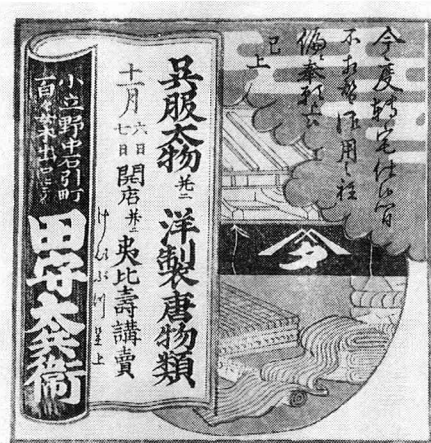 今度轉宅仕候間
不相替御用之程
偏奉願上候
已上
呉服太物并ニ洋製唐物類
十一月六日七日開店并ニ夷比壽講賣
けんぶつ呈上
小立野中石引町
田守太兵衞